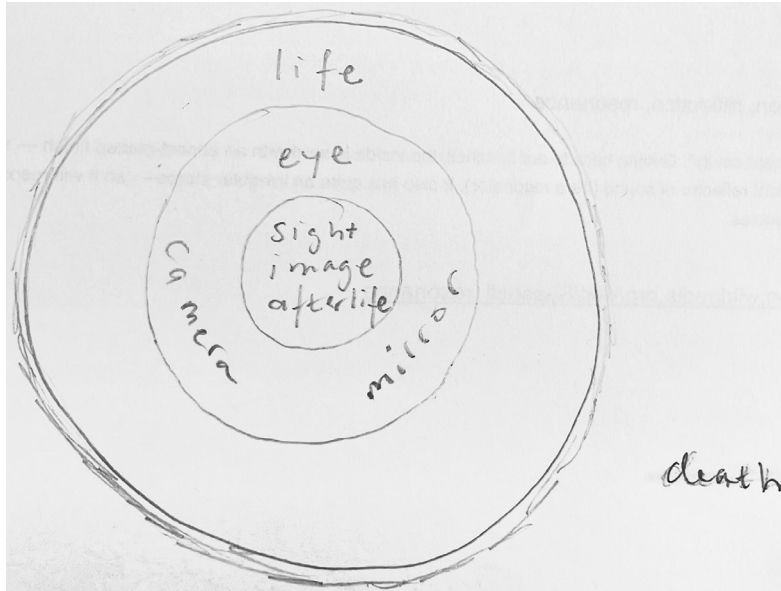 life
eye
sight
image
afterlife
camera
mirror
death